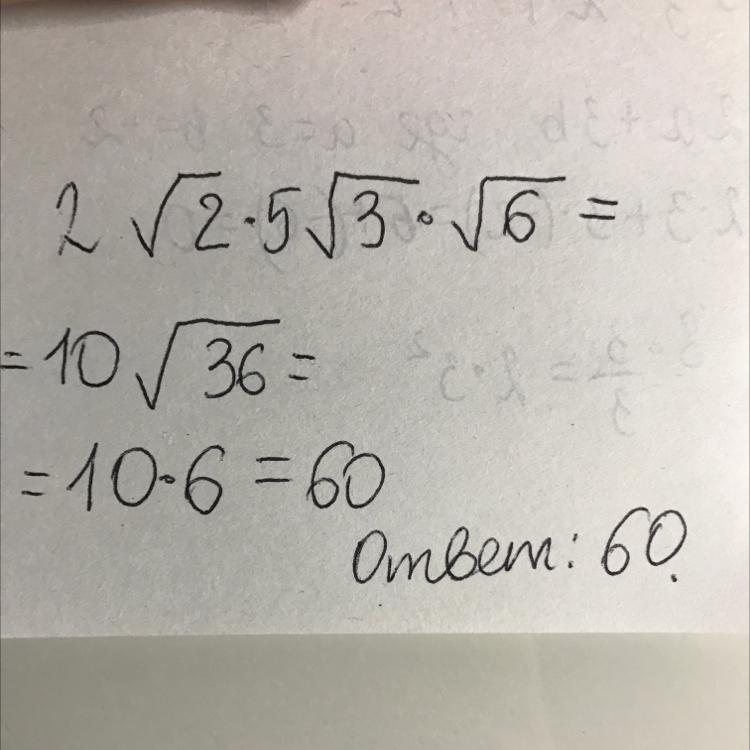 2√2·5√3·√6=
=10√36=
=10·6=60
Ответ: 60.